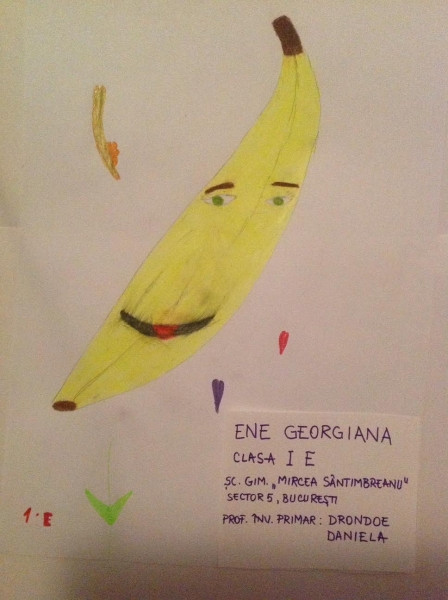 ENE GEORGIANA
CLASA I E
ȘC. GIM. „MIRCEA SÂNTIMBREANU"
SECTOR 5, BUCUREȘTI
PROF. ÎNV. PRIMAR: DRONDOE
DANIELA
1·E